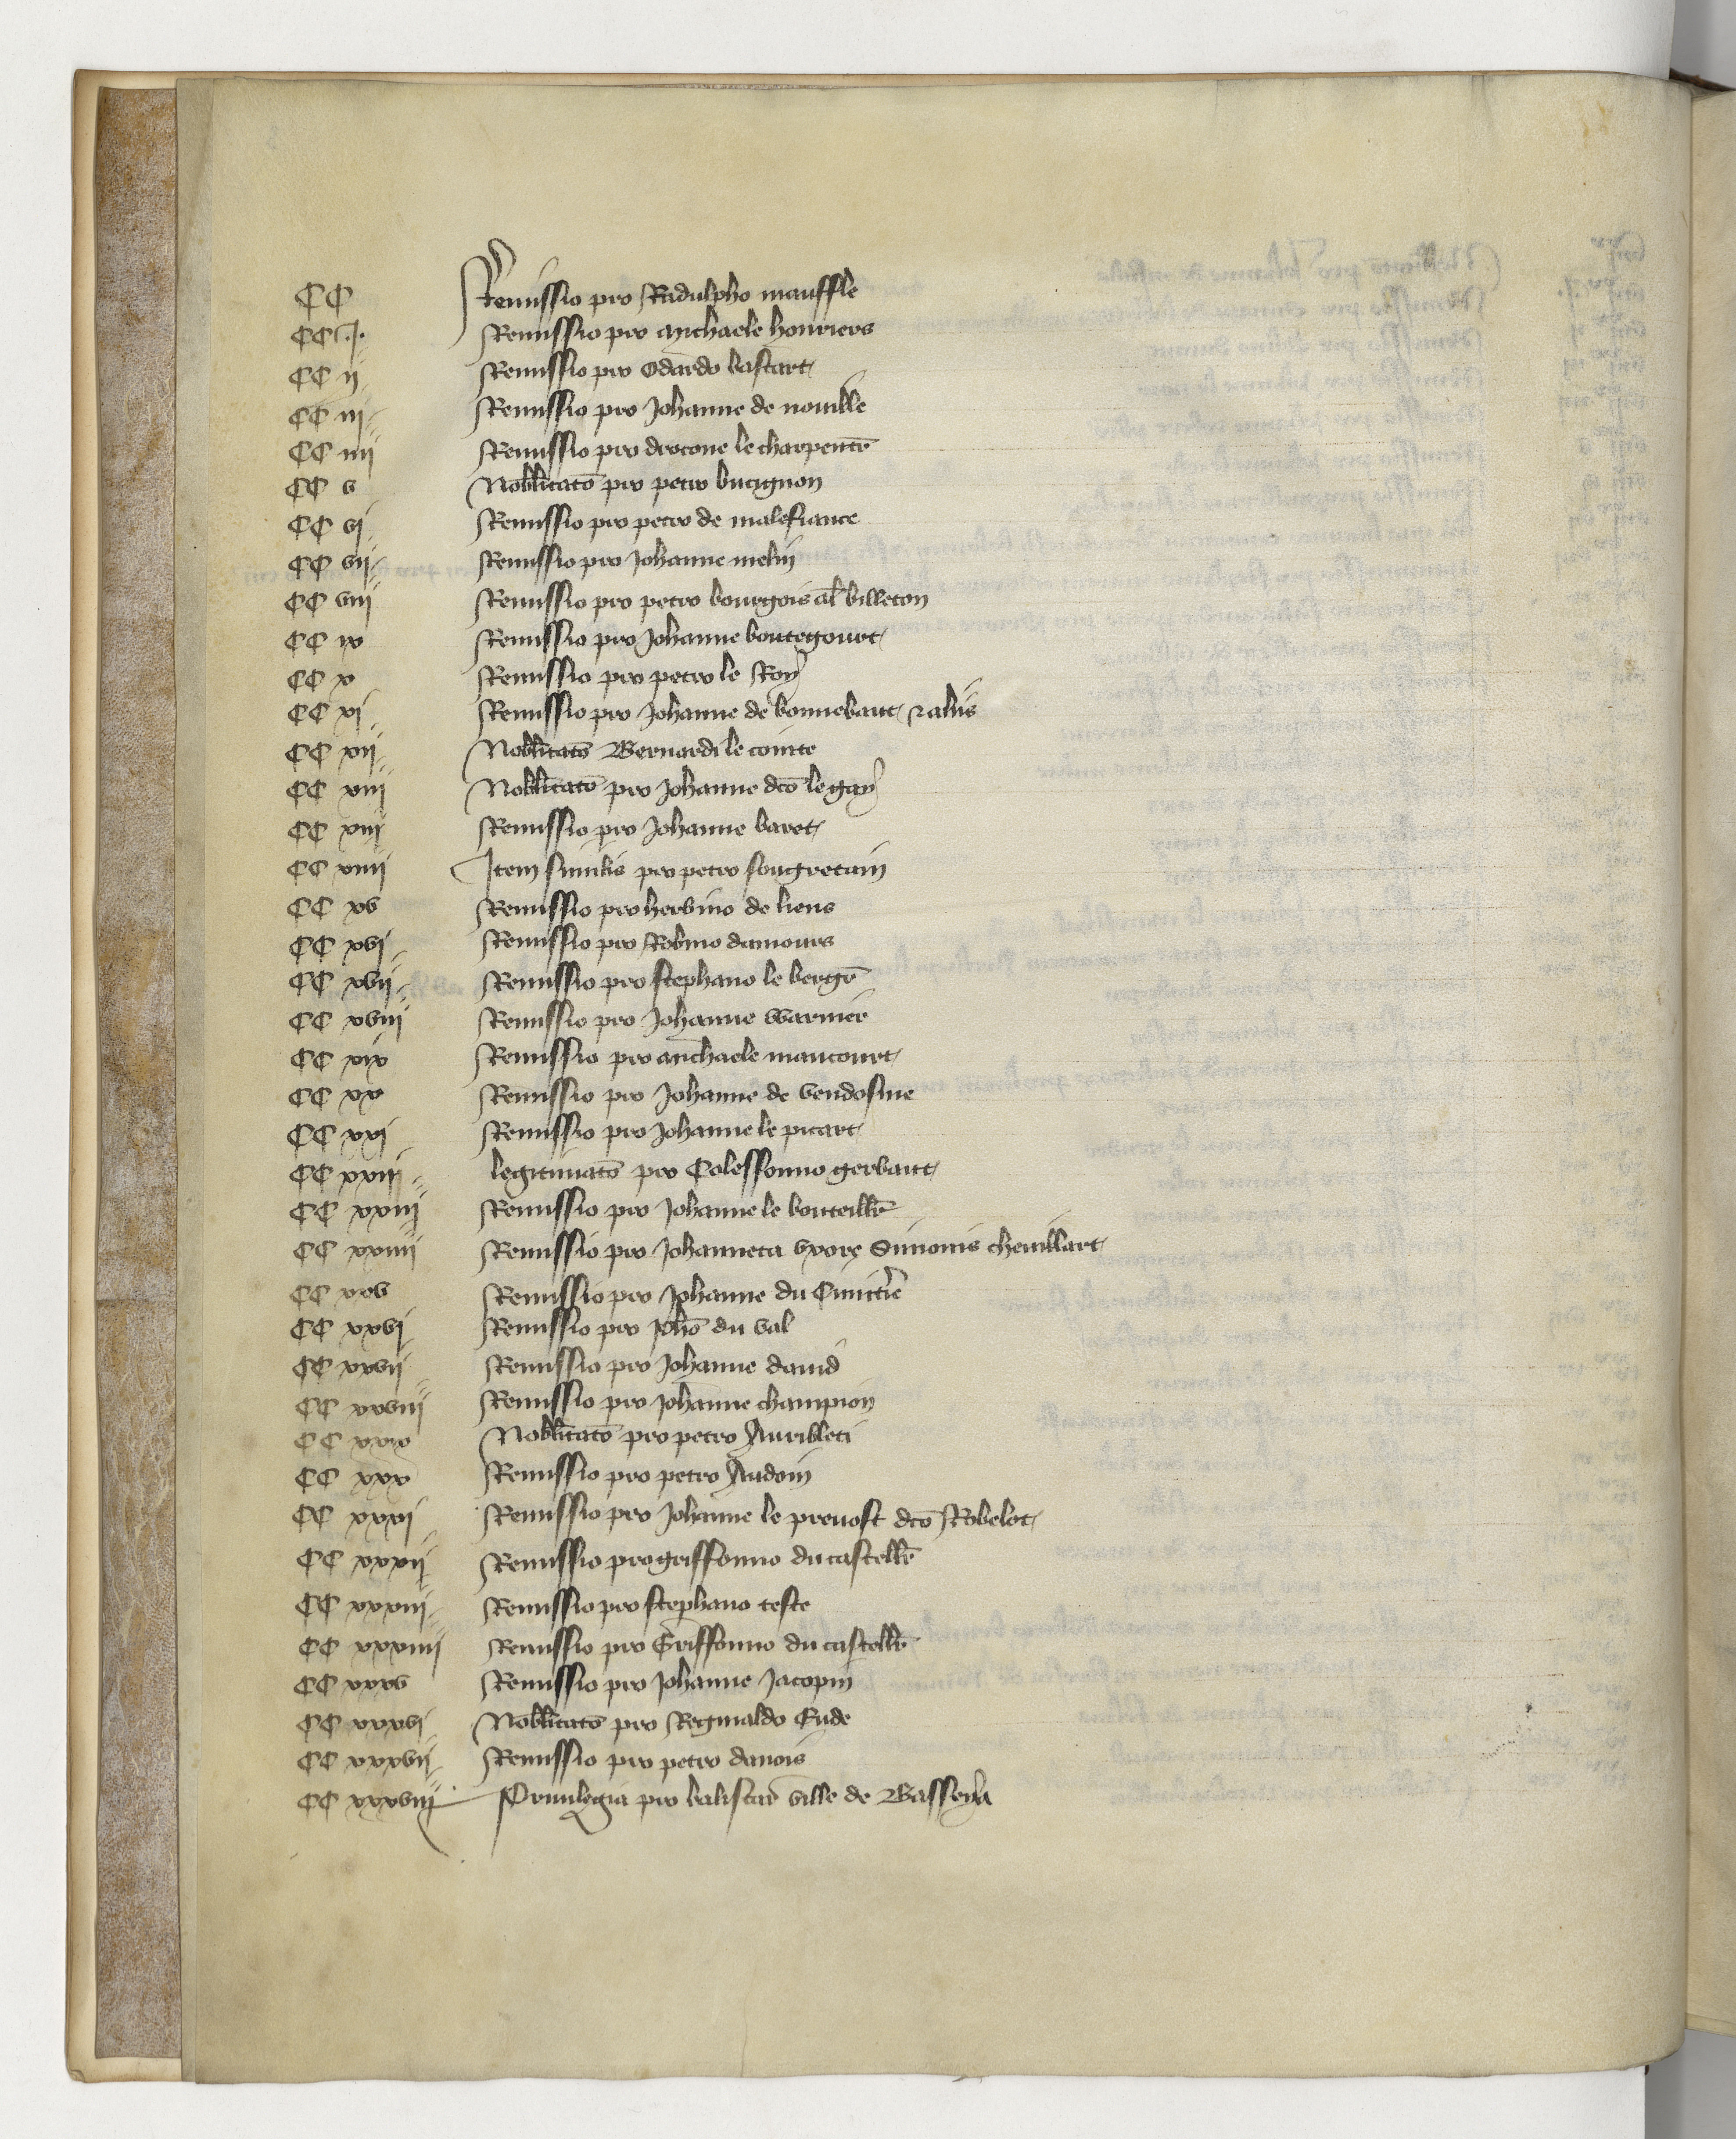 CC Remissio pro Radulpho mauffle
CC .j. Remissio pro Michaele houriers
CC ij Remissio pro Odardo bastart
CC iij Remissio pro Johanne de nouille
CC iiij Remissio pro drocone le charpent̄
CC v Nobilitatō pro petro bucignon
CC vj Remissio pro petro de malefiance
CC vij Remissio pro Johanne melin
CC viij Remissio pro petro bourgois al̄ billeton
CC ix Remissio pro Johanne boutegourt
CC x Remissio pro petro le Roy
CC xj Remissio pro Johanne de bonnebaut ⁊ aliis
CC xij Nobilitatō Bernardi le conte
CC xiij Nobilitatō pro Johanne dcō le gay
CC xiij Remissio pro Johanne baret
CC xiiij Item similis pro petro songretain
CC xv Remissio pro hervino de liens
CC xvj Remissio pro Robino damours
CC xvij Remissio pro stephano le berḡ
CC xviij Remissio pro Johanne warnier
CC xix Remissio pro Michaele maucourt
CC xx Remissio pro Johanne de vendosme
CC xxj Remissio pro Johanne le picart
CC xxiij legitimatō pro Colessonno gerbaut
CC xxiij Remissio pro Johanne le bouteill̄
CC xxiiij Remissio pro Johanneta vxore Simonis cheuillart
CC xxv Remissio pro Johanne du Cimitie
CC xxvj Remissio pro Joh̄e du val
CC xxvij Remissio pro Johanne dauid
CC xxviij Remissio pro Johanne champion
CC xxix Nobilitatō pro petro Auribleti
CC xxx Remissio pro petro Audoin
CC xxxj Remissio pro Johanne le preuost dcō Robelot
CC xxxij Remissio pro griffonno du castell̄
CC xxxiij Remissio pro stephano teste
CC xxxiiij Remissio pro Griffonno du castell̄
CC xxxv Remissio pro Johanne Jacopin
CC xxxvj Nobilitatō pro Reginaldo Eude
CC xxxvij Remissio pro petro danois
CC xxxviij Priuilegia pro balistar̄ ville de Basseya